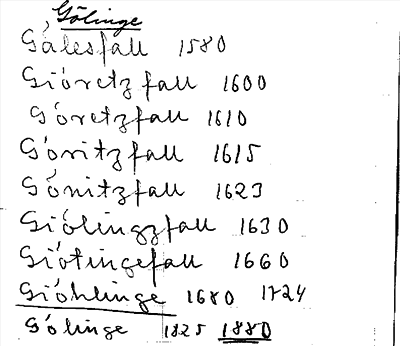 Gölinge
Gålesfall 1580
Gióretzfall 1600
Góretzfall 1610
Góritzfall 1615
Gónitzfall 1623
Giólingzfall 1630
Giótingefall 1660
Gióhlinge 1680 1724
Gólinge 1825 1880